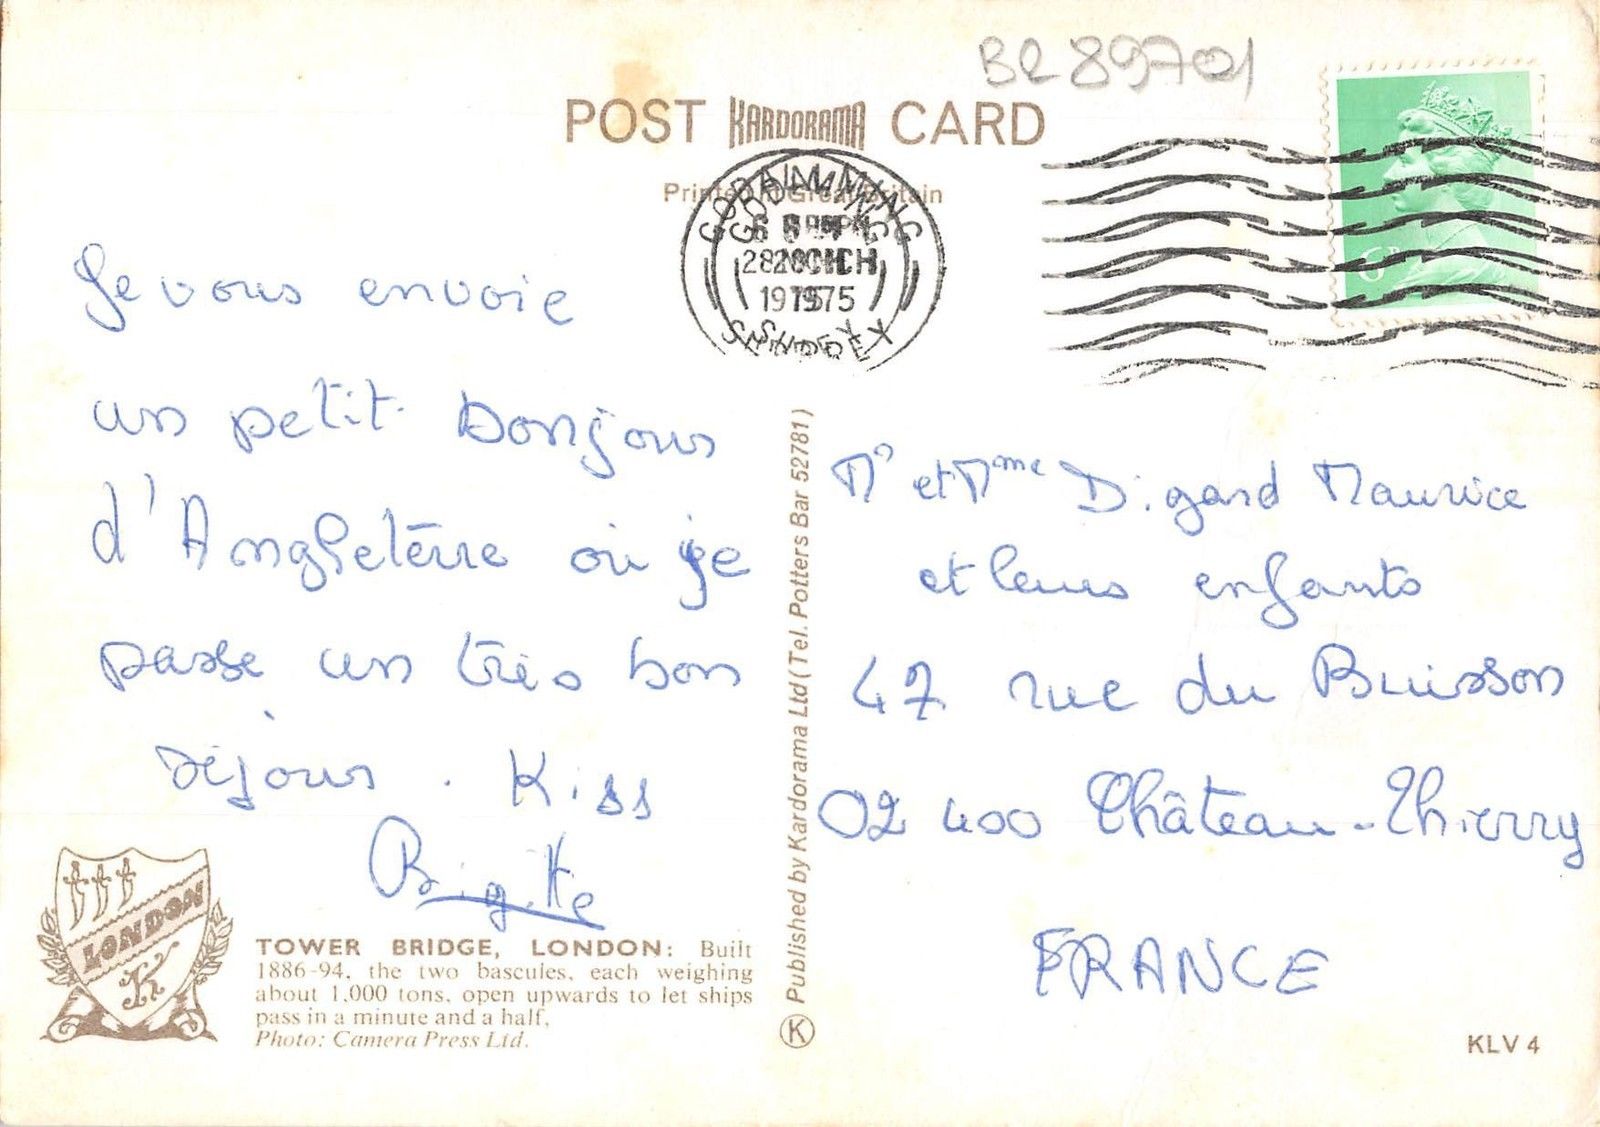 BR 89701
POST KARDORAMA CARD
Printed in Great Britain
GODALMING
28 MCH
1975
6P
Je vous envoie
un petit bonjour
d'Angleterre où je
passe un très bon
séjour. Kiss
Brigitte
Mr et Mme Digard Maurice
et leurs enfants
47 rue du Buisson
02 400 Château-Thierry
FRANCE
Published by Kardorama Ltd (Tel. Potters Bar 52781)
K
LONDON
K
TOWER BRIDGE, LONDON: Built
1886-94, the two bascules, each weighing
about 1,000 tons, open upwards to let ships
pass in a minute and a half,
Photo: Camera Press Ltd.
KLV 4